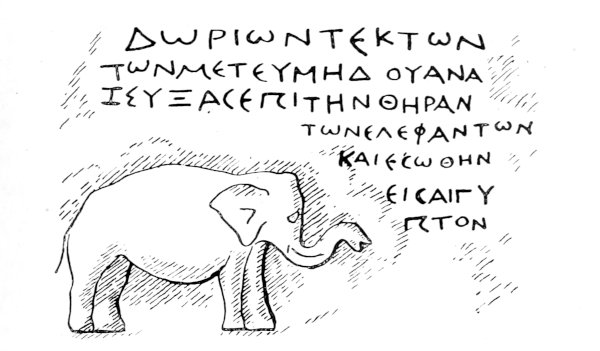 ΔΩΡΙΩΝΤΕΚΤΩΝ
ΤΩΝΜΕΤΕΥΜΗΔ ΟΥΑΝΑ
ΖΕΥΞΑϹΕΠΙΤΗΝΘΗΡΑΝ
ΤΩΝΕΛΕΦΑΝΤΩΝ
ΚΑΙΕϹΩΘΗΝ
ΕΙϹΑΙΓΥ
ΠΤΟΝ